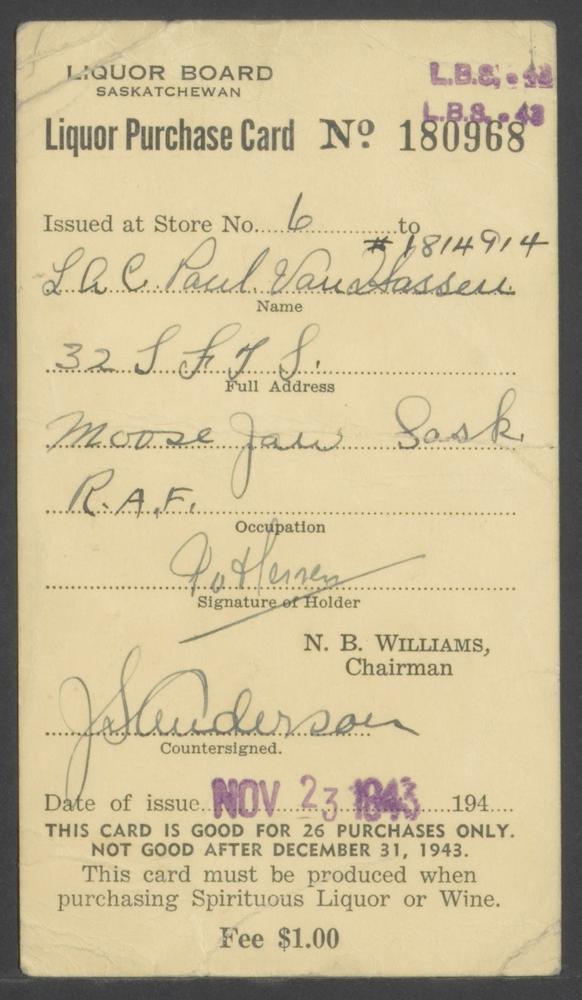 LIQUOR BOARD
SASKATCHEWAN
L.B.S. - 43
L.B.S. - 43
Liquor Purchase Card No 180968
Issued at Store No. 6 to
# 1814914
L A C. Paul. Van Hassen
Name
32 S F T S.
Full Address
Moose Jaw Sask.
R.A.F.
Occupation
Signature of Holder
N. B. WILLIAMS,
Chairman
Anderson
Countersigned.
Date of issue NOV 23 1943 194
THIS CARD IS GOOD FOR 26 PURCHASES ONLY.
NOT GOOD AFTER DECEMBER 31, 1943.
This card must be produced when
purchasing Spirituous Liquor or Wine.
Fee $1.00